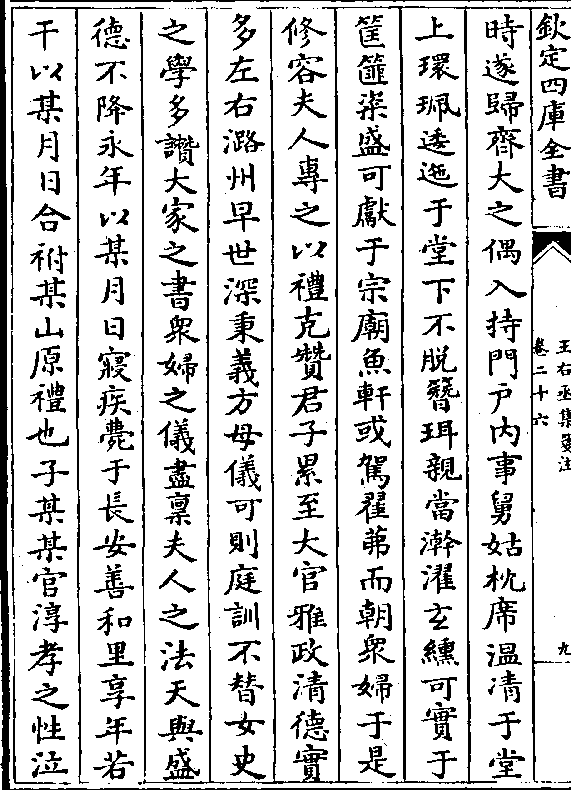 欽定四庫全書
王右丞集箋注
卷二十六
九
時遂歸齊大之偶入持門戶内事舅姑枕席温凊于堂
上環珮逶迤于堂下不脱簪珥親當澣濯玄纁可實于
筐篚粢盛可獻于宗廟魚軒或駕翟茀而朝衆婦于是
修容夫人專之以禮克贊君子累至大官雅政清德實
多左右潞州早世深秉義方母儀可則庭訓不替女史
之學多讚大家之書衆婦之儀盡稟夫人之法天與盛
德不降永年以某月日寢疾薨于長安善和里享年若
干以某月日合祔某山原禮也子某某官淳孝之性泣